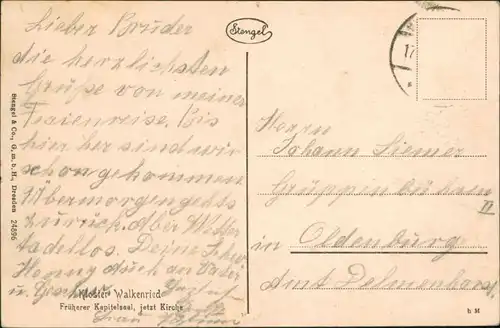 Lieber Bruder
die herzlichsten
Grüße von meiner
Ferienreise. Bis
hier her sind wir
schon gekommen
Übermorgen gehts
zurück. Aber Wetter
tadellos. Deine Schw
auch an
u.
Kloster Walkenried
Früherer Kapitelsaal, jetzt Kirche
Stengel & Co., G. m. b. H., Dresden 24896
Stengel
17
Herrn
Johann Siemer
Grüppenbühren
II
in Oldenburg
Amt Delmenhorst
h M